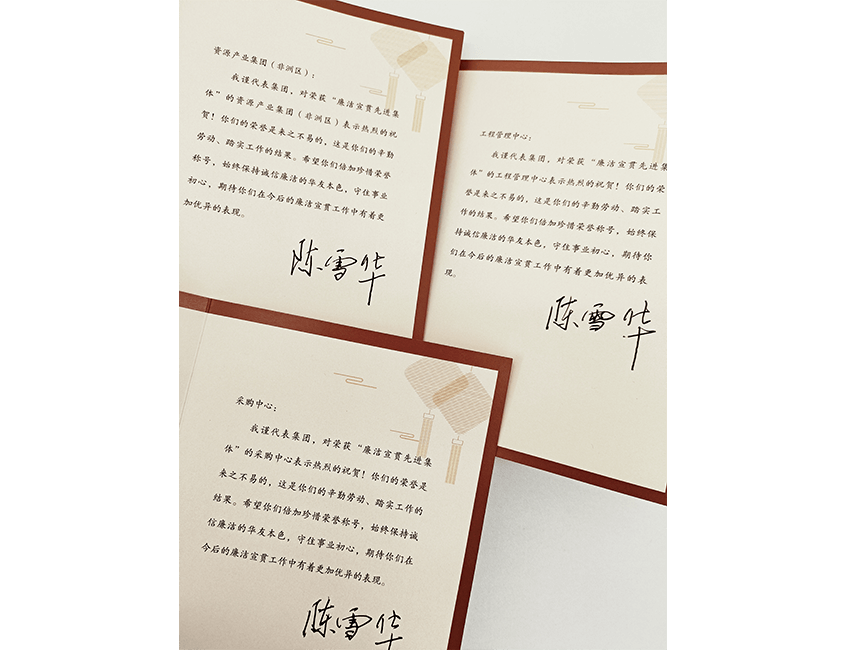 资源产业集团（非洲区）：
我谨代表集团，对荣获“廉洁宣贯先进集
体”的资源产业集团（非洲区）表示热烈的祝
贺！你们的荣誉是来之不易的，这是你们的辛勤
劳动、踏实工作的结果。希望你们倍加珍惜荣誉
称号，始终保持诚信廉洁的华友本色，守住事业
初心，期待你们在今后的廉洁宣贯工作中有着更
加优异的表现。
陈雪华
工程管理中心：
我谨代表集团，对荣获“廉洁宣贯先进集
体”的工程管理中心表示热烈的祝贺！你们的荣
誉是来之不易的，这是你们的辛勤劳动、踏实工
作的结果。希望你们倍加珍惜荣誉称号，始终保
持诚信廉洁的华友本色，守住事业初心，期待你
们在今后的廉洁宣贯工作中有着更加优异的表
现。
陈雪华
采购中心：
我谨代表集团，对荣获“廉洁宣贯先进集
体”的采购中心表示热烈的祝贺！你们的荣誉是
来之不易的，这是你们的辛勤劳动、踏实工作的
结果。希望你们倍加珍惜荣誉称号，始终保持诚
信廉洁的华友本色，守住事业初心，期待你们在
今后的廉洁宣贯工作中有着更加优异的表现。
陈雪华